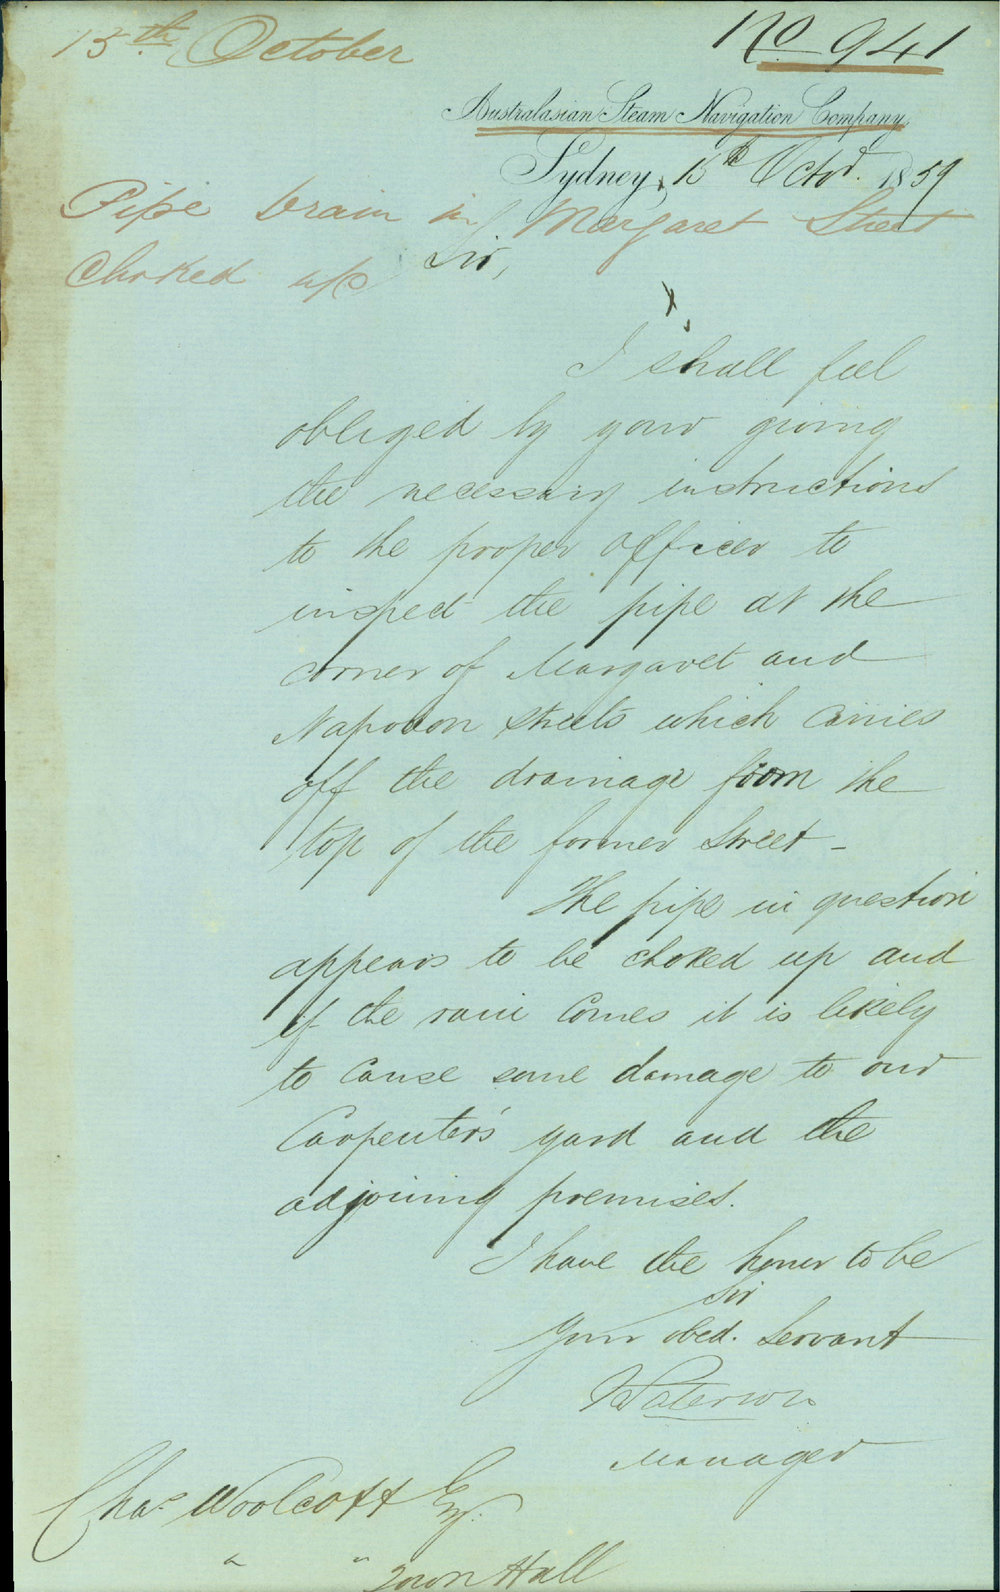 15th October
No 941
Australasian Steam Navigation Company
Sydney, 15th Octor. 1859
Pipe Drain in Margaret Street
Choked up
Sir,
I shall feel
obliged by your giving
the necessary instructions
to the proper officer to
inspect the pipe at the
corner of Margaret and
Napoleon Streets which carries
off the drainage from the
top of the former Street -
The pipe in question
appears to be choked up and
if the rain comes it is likely
to cause some damage to our
Carpenter's yard and the
adjoining premises.
I have the honor to be
Sir
Your obed. Servant
Paterson
Manager
Chas. Woolcott Esq.
" " Town Hall